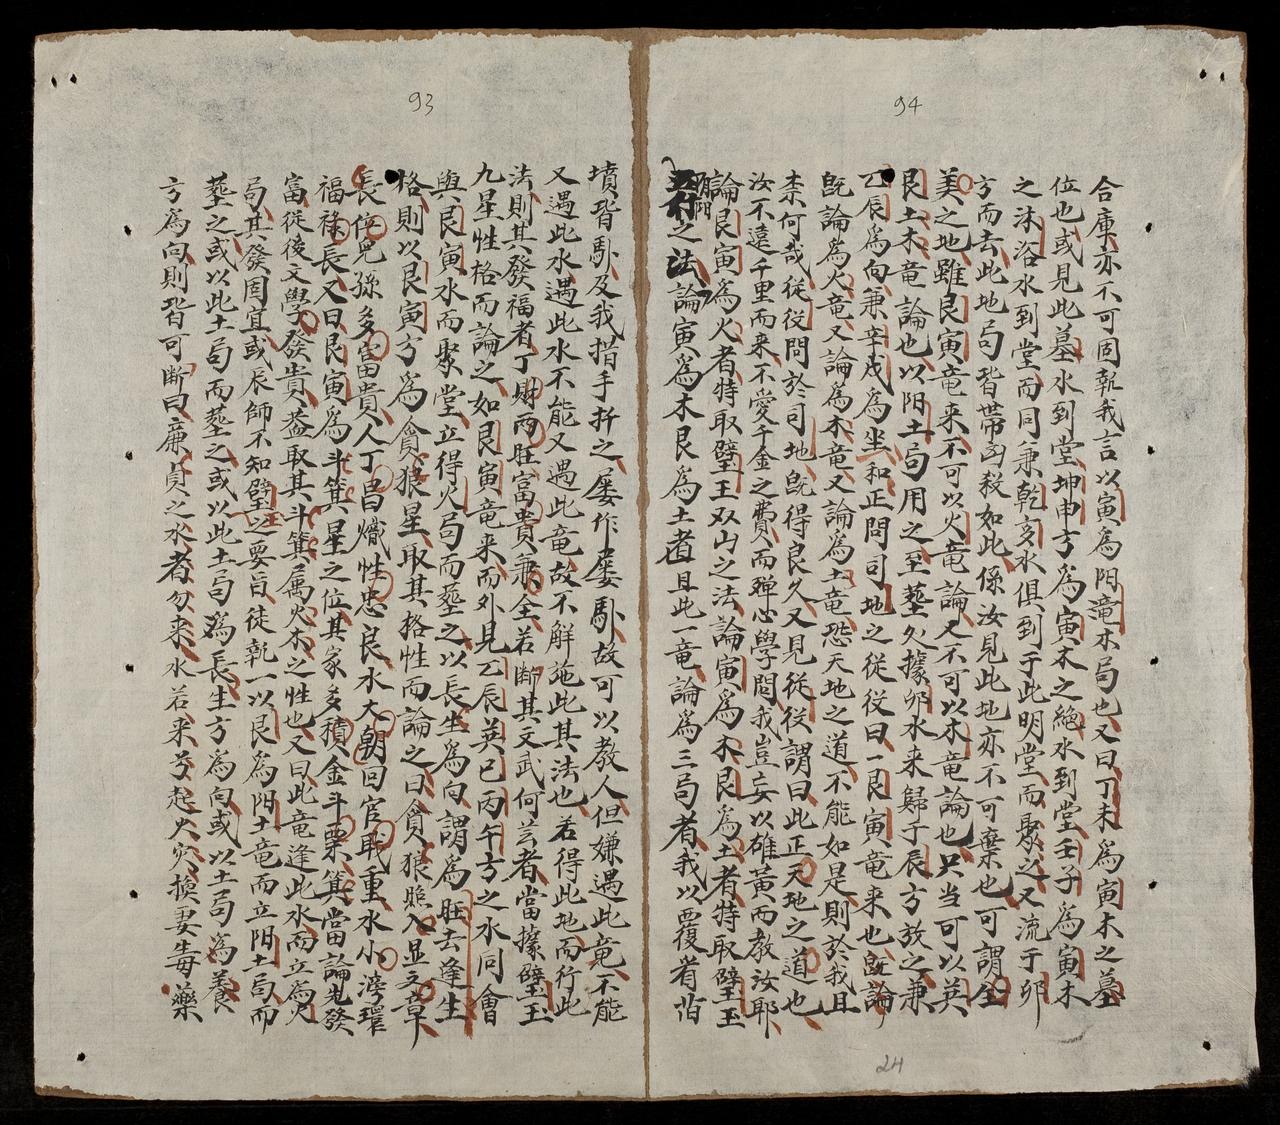 94
合庫亦不可固執我言以寅為陽竜木局也又曰丁未為寅木之墓
位也或見此墓水到堂坤申方為寅木之絕水到堂壬子為寅木
之沐浴水到堂而同兼乾亥水俱到于此明堂而聚之又流于卯
方而去此地局皆帶凶殺如此係汝見此地亦不可棄也可謂全
美之地雖艮寅竜来不可以火竜論又不可以木竜論也只当可以英
艮土木竜論也以阳土局用之至𦵏欠據卯水来歸于辰方放之兼
乙辰為向兼辛戌為坐和正問司地之從役曰一艮寅竜来也既論
既論為火竜又論為木竜又論為土竜恐天地之道不能如是則於我且
柰何哉從役問於司地既得良久又見從役謂曰此正天地之道也
汝不遠千里而来不愛千金之費而殫心學問我豈妄以雄黃而教汝耶
論艮寅為火者特取壁玉双山之法論寅為木艮為土者特取壁玉
五行之法論寅為木艮為土者且此一竜論為三局者我以覆省皆
24
93
墳皆馱及我措手扦之屡作屡馱故可以教人但嫌遇此竜不能
又遇此水遇此水不能又遇此竜故不解施此其法也若得此地而行此
法則其發福者丁財两旺富貴兼全若断其文武何芸者當據壁玉
九星性格而論之如艮寅竜来而外見乙辰英巳丙午方之水同會
與艮寅水而聚堂立得火局而𦵏之以長生為向謂為旺去逢生
格則以艮寅方為貪狼星取其格性而論之曰貪狼照入显文章
長位兒孫多富貴人丁昌熾性忠良水大朝囬官職重水小灣環
福祿長又曰艮寅為斗箕星之位其家多積金斗粟箕當論先發
富從後文學發貴盖取其斗箕属火木之性也又曰此竜逢此水而立為火
局其發固宜或辰師不知壁玉之要旨徒執一以艮為阳土竜而立阳土局而
𦵏之或以此土局而𦵏之或以此土局為長生方為向或以土局為養
方為向則皆可断曰廉貞之水者勿来水若来兮起火灾換妻毒藥